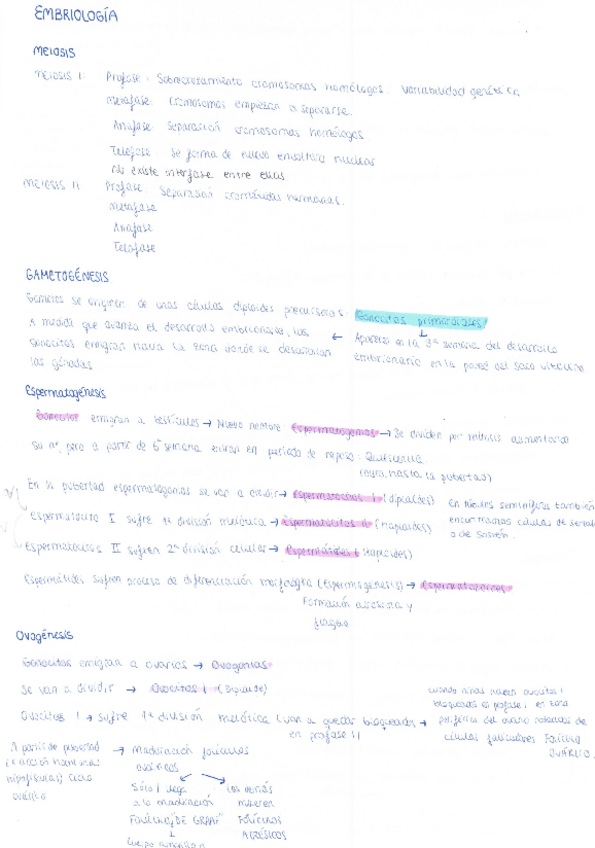 EMBRIOLOGÍA
MEIOSIS
Meiosis I: Profase: Sobrecruzamiento cromosomas homólogos. Variabilidad genética
Metafase: Cromosomas empiezan a separarse.
Anafase: Separación cromosomas homólogos
Telofase: se forma de nuevo envoltura nuclear
No existe interfase entre ellas
Meiosis II: Profase: Separación cromátidas hermanas.
Metafase
Anafase
Telofase
GAMETOGÉNESIS
Gametos se originan de unas células diploides precursoras: Gonocitos primordiales
A medida que avanza el desarrollo embrionario, los ← Aparecen en la 3ª semana del desarrollo
gonocitos emigran hacia la zona donde se desarrollan embrionario en la pared del saco vitelino
las gónadas
Espermatogénesis
Gonocitos emigran a testículos → Nuevo nombre Espermatogonias → Se dividen por mitosis aumentando
su nº, pero a partir de 6ª semana entran en periodo de reposo: Quiescencia
(dura hasta la pubertad)
En la pubertad espermatogonias se van a dividir → Espermatocitos I (diploides)
Espermatocito I sufre 1ª división meiótica → Espermatocitos II (haploides)
En túbulos seminíferos también
encontramos células de sertoli
o de sostén.
Espermatocitos II sufren 2ª división celular → Espermátidas (haploides)
Espermátidas sufren proceso de diferenciación morfológica (Espermiogénesis) → Espermatozoides
Formación acrosoma y
flagelo
Ovogénesis
Gonocitos emigran a ovarios → Ovogonias
Se van a dividir → Ovocitos I (Diploide)
Ovocitos I → sufre 1ª división meiótica (van a quedar bloqueados →
en profase I)
cuando niñas nacen ovocitos I
bloqueados en profase I en zona
periférica del ovario rodeados de
células foliculares FOLÍCULO
OVÁRICO.
A partir de pubertad → Maduración folículos
(x acción hormonas ováricos
hipofisarias) ciclo
ovárico
Sólo 1 llega
a la maduración
FOLÍCULO "DE GRAAF"
↓
Los demás
mueren
FOLÍCULOS
ATRÉSICOS